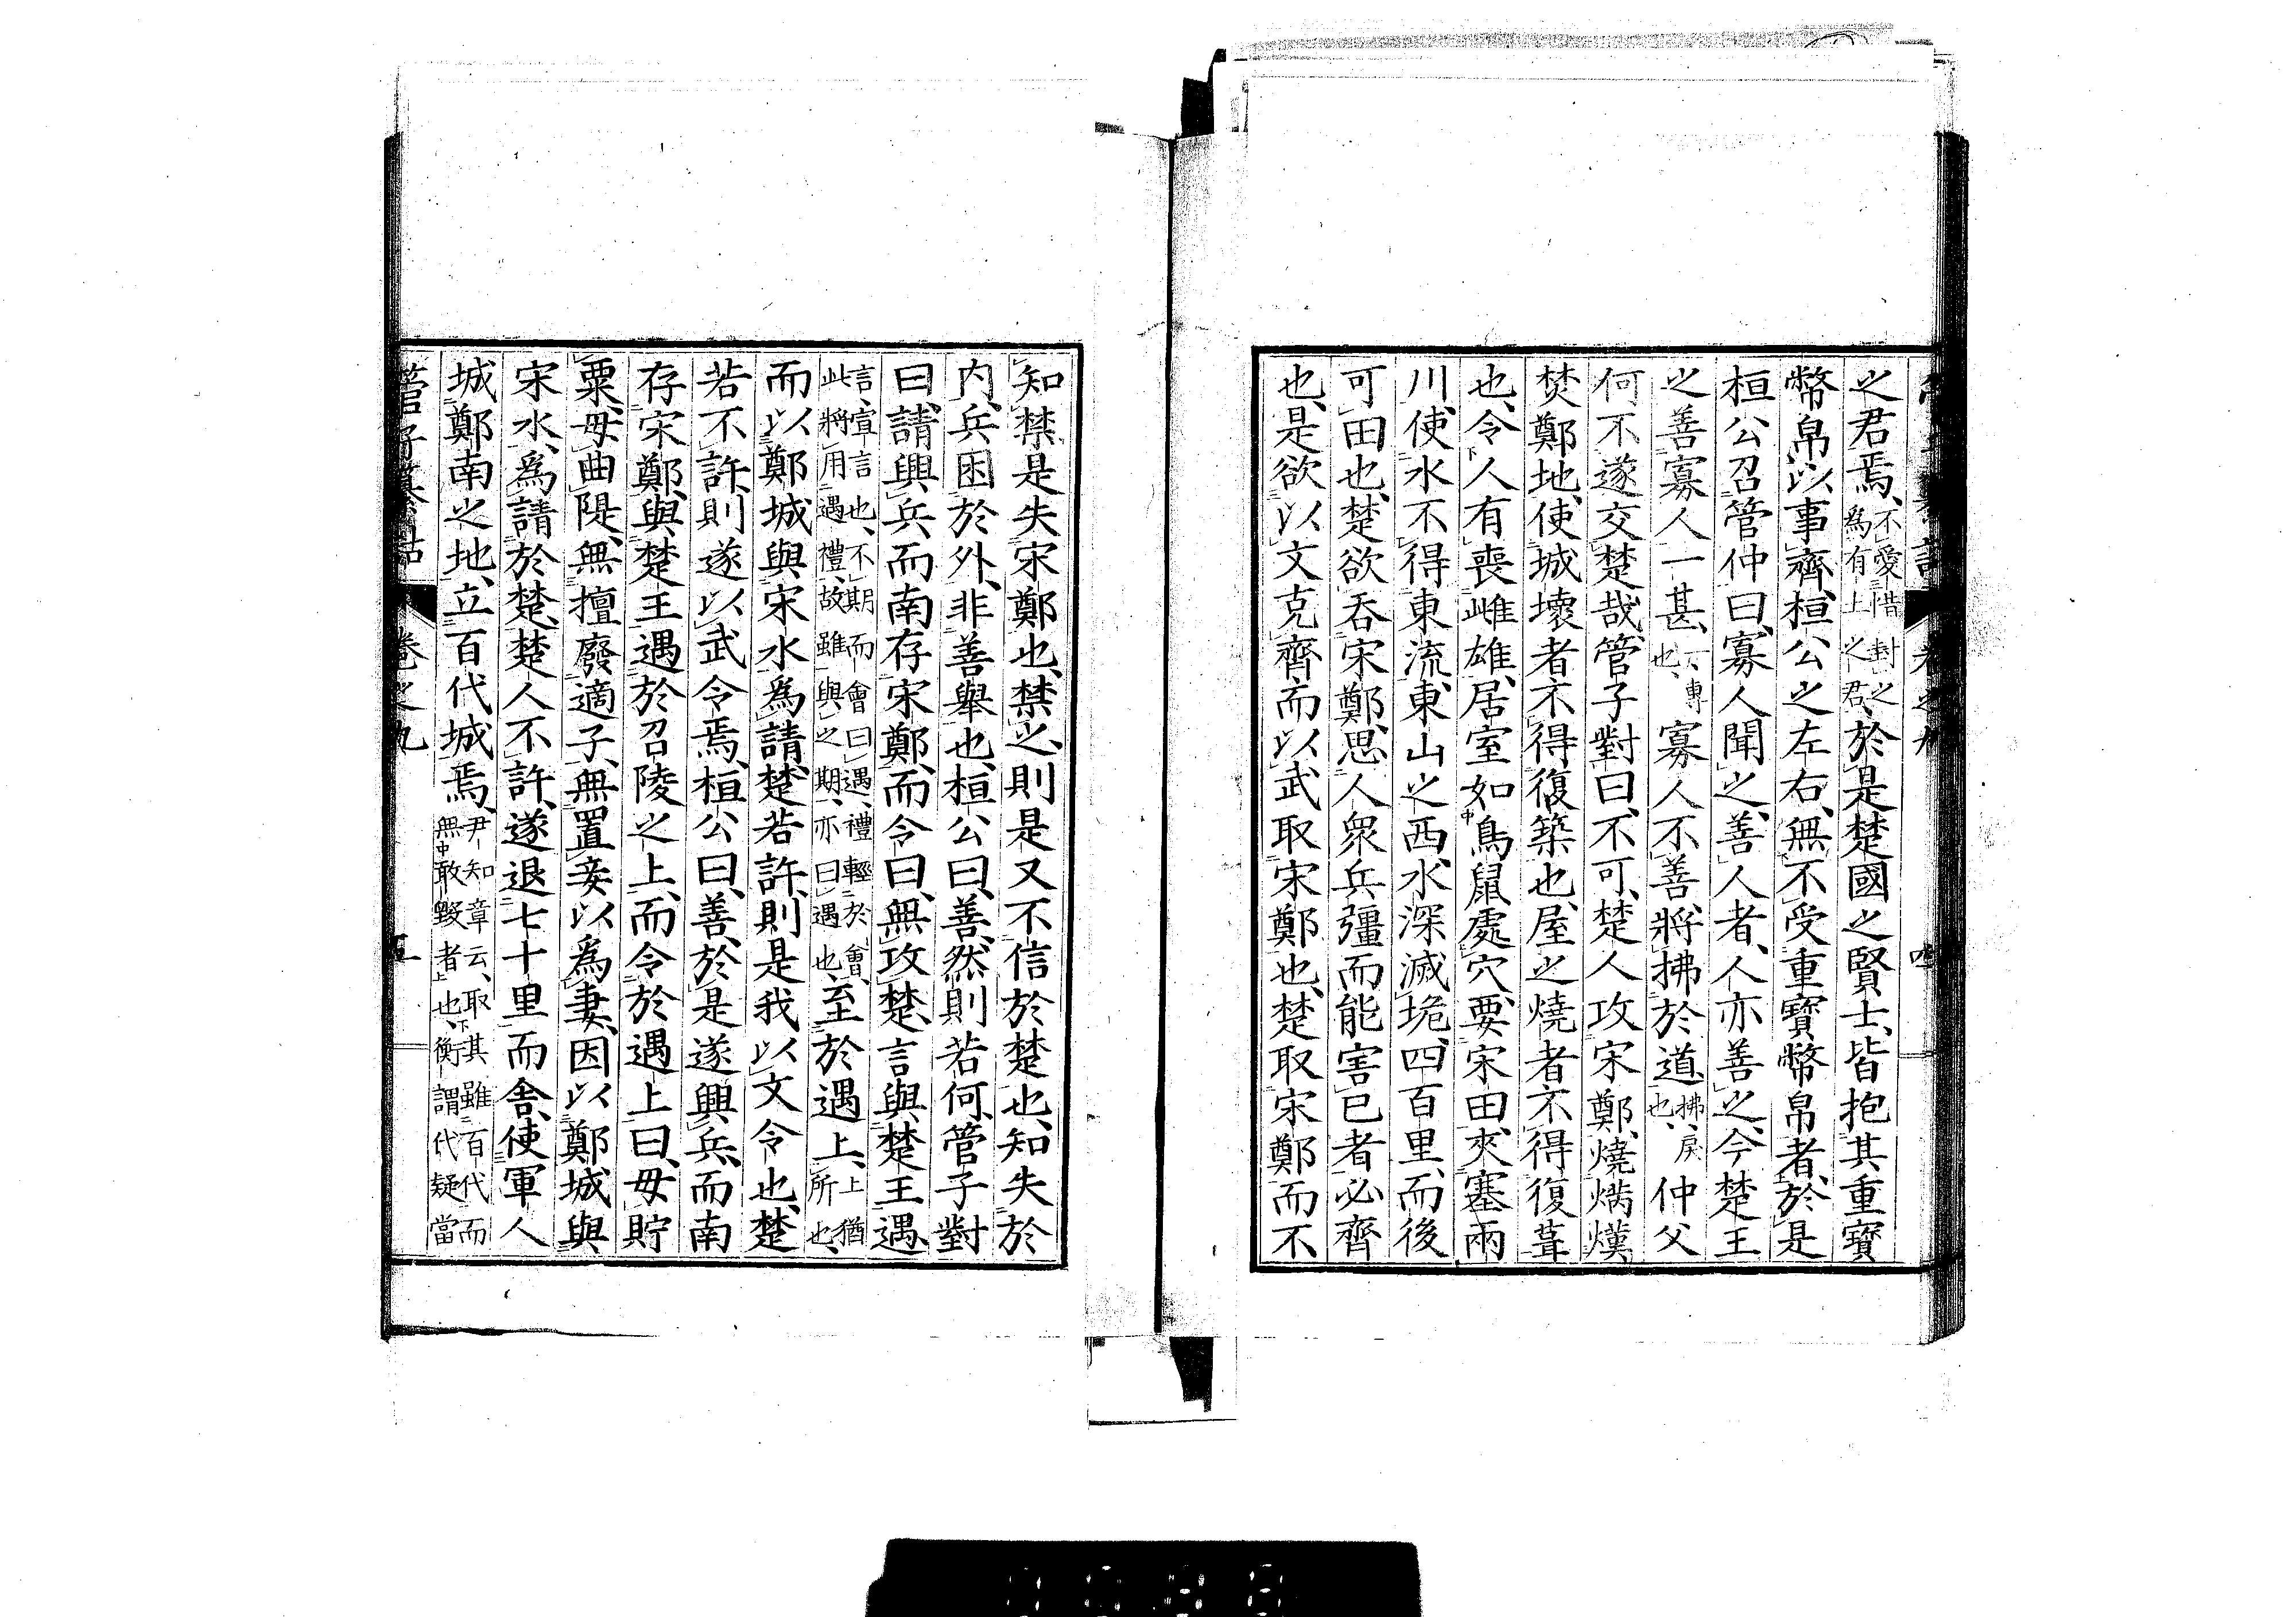 之君焉、不愛惜封之爲有上之君、於是楚國之賢士、皆抱其重寶
幣帛、以事齊、桓公之左右、無不受重寶幣帛者、於是
桓公召管仲曰、寡人聞之、善人者、人亦善之、今楚王
之善寡人一甚、專也、寡人不善、將拂於道、拂、戾也、仲父
何不遂交楚哉、管子對曰、不可、楚人攻宋鄭、燒焫熯
焚鄭地、使城壞者不得復築也、屋之燒者不得復葺
也、令人有喪雌雄、居室如鳥鼠處穴、要宋田、夾塞兩
川、使水不得東流、東山之西、水深滅垝、四百里、而後
可田也、楚欲吞宋鄭、思人衆兵彊而能害己者必齊
也、是欲以文克齊、而以武取宋鄭也、楚取宋鄭而不
知禁是失宋鄭也、禁之、則是又不信於楚也、知失於
內、兵困於外、非善舉也、桓公曰、善、然則若何、管子對
曰、請興兵而南存宋鄭、而令曰、無攻楚、言與楚王遇、
言、宣言也、不期而會曰遇、禮輕於會、此將用遇禮、故雖與之期、亦曰遇也、至於遇上、上猶所也、
而以鄭城與宋水爲請楚、若許、則是我以文令也、楚
若不許、則遂以武令焉、桓公曰、善、於是遂興兵、而南
存宋鄭、與楚王遇於召陵之上、而令於遇上曰、毋貯
粟、毋曲隄、無擅廢適子、無置妾以爲妻、因以鄭城與
宋水、爲請於楚、楚人不許、遂退七十里而舍、使軍人
城鄭南之地、立百代城焉、尹知章云、取其雖百代而無敢毀者也、衡謂代疑當
管子纂詁 卷之九 五